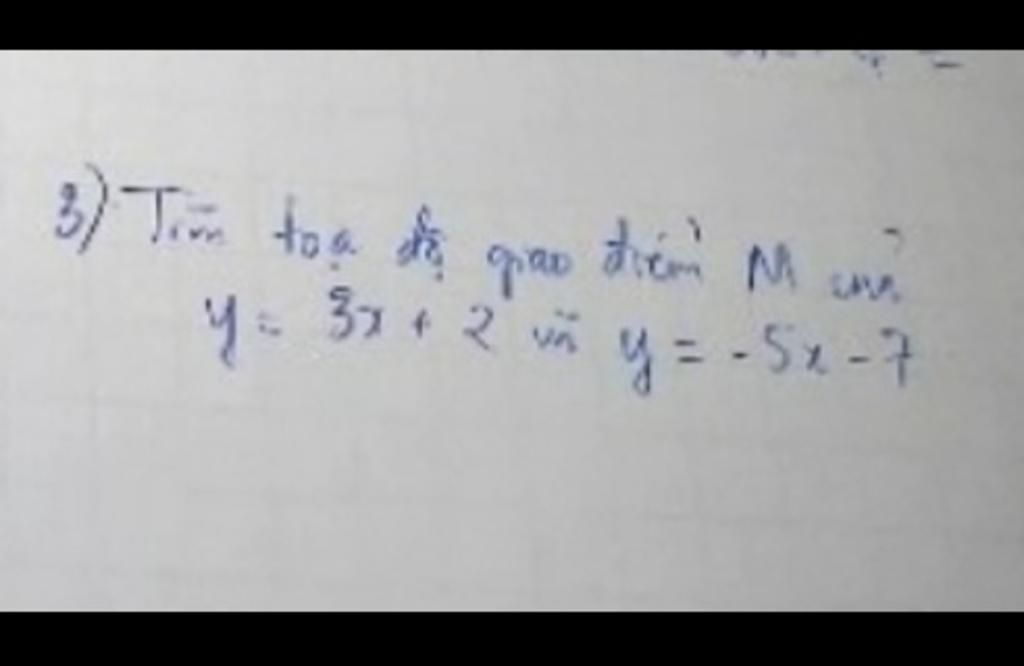 3) Tìm toạ độ giao điểm M của
y = 3x + 2 và y = -5x - 7